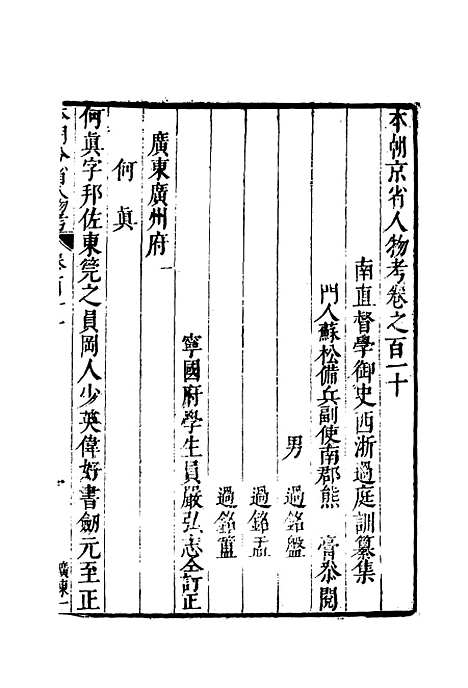 本朝京省人物考卷之百一十
南直督學御史西浙過庭訓纂集
門人蘇松備兵副使南郡熊 膏叅閱
男 過銘盤
過銘盂
過銘簠
寧國府學生員嚴弘志仝訂正
廣東廣州府一
何眞
何眞字邦佐東筦之員岡人少英偉好書劒元至正
廣東一